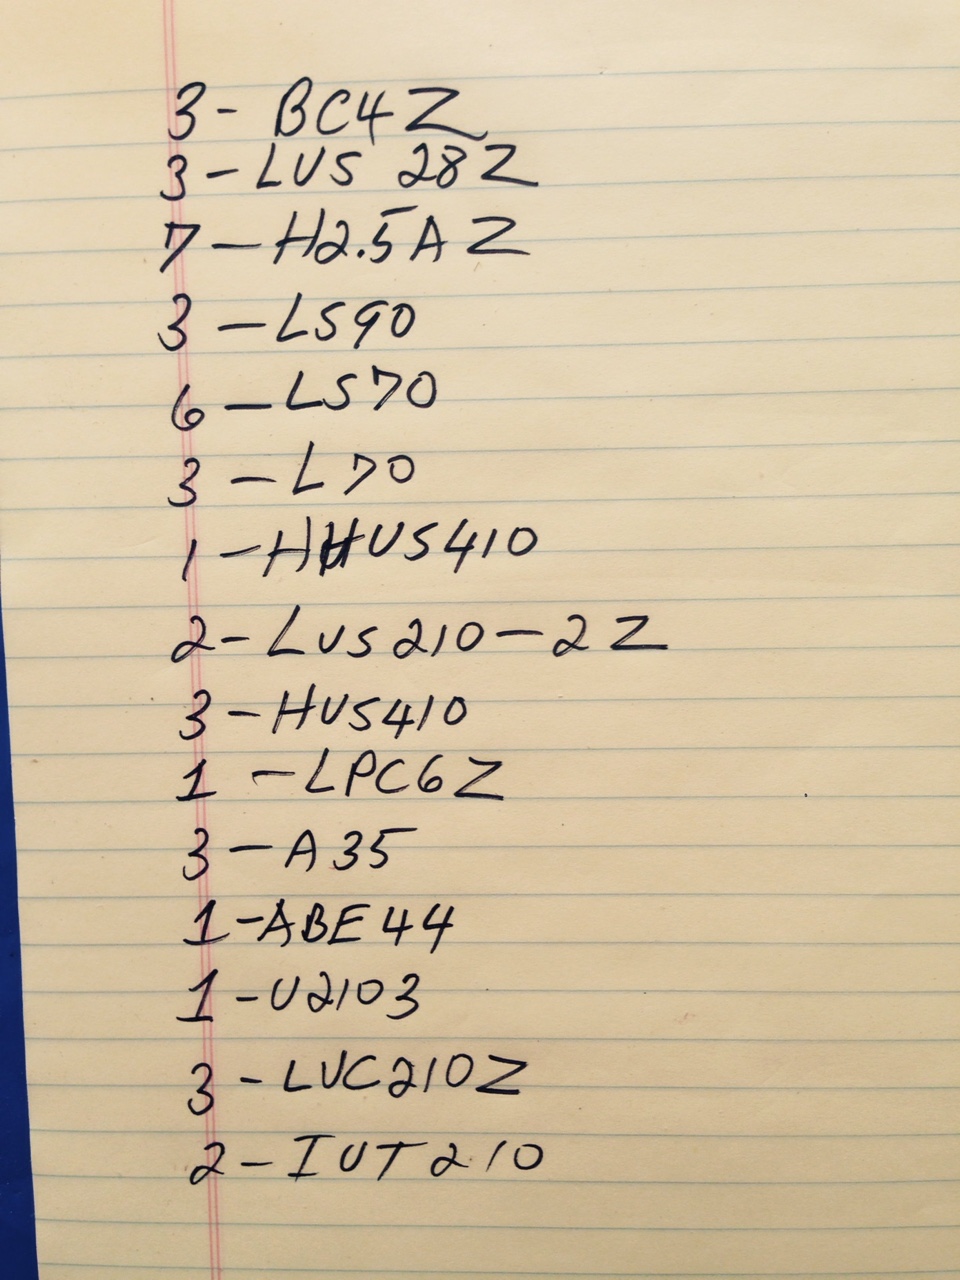 3- BC4Z
3-LUS 28Z
7-H2.5AZ
3-LS90
6-LS70
3-L70
1-HHUS410
2-LUS210-2Z
3-HUS410
1-LPC6Z
3-A35
1-ABE44
1-U2103
3-LUC210Z
2-IUT210